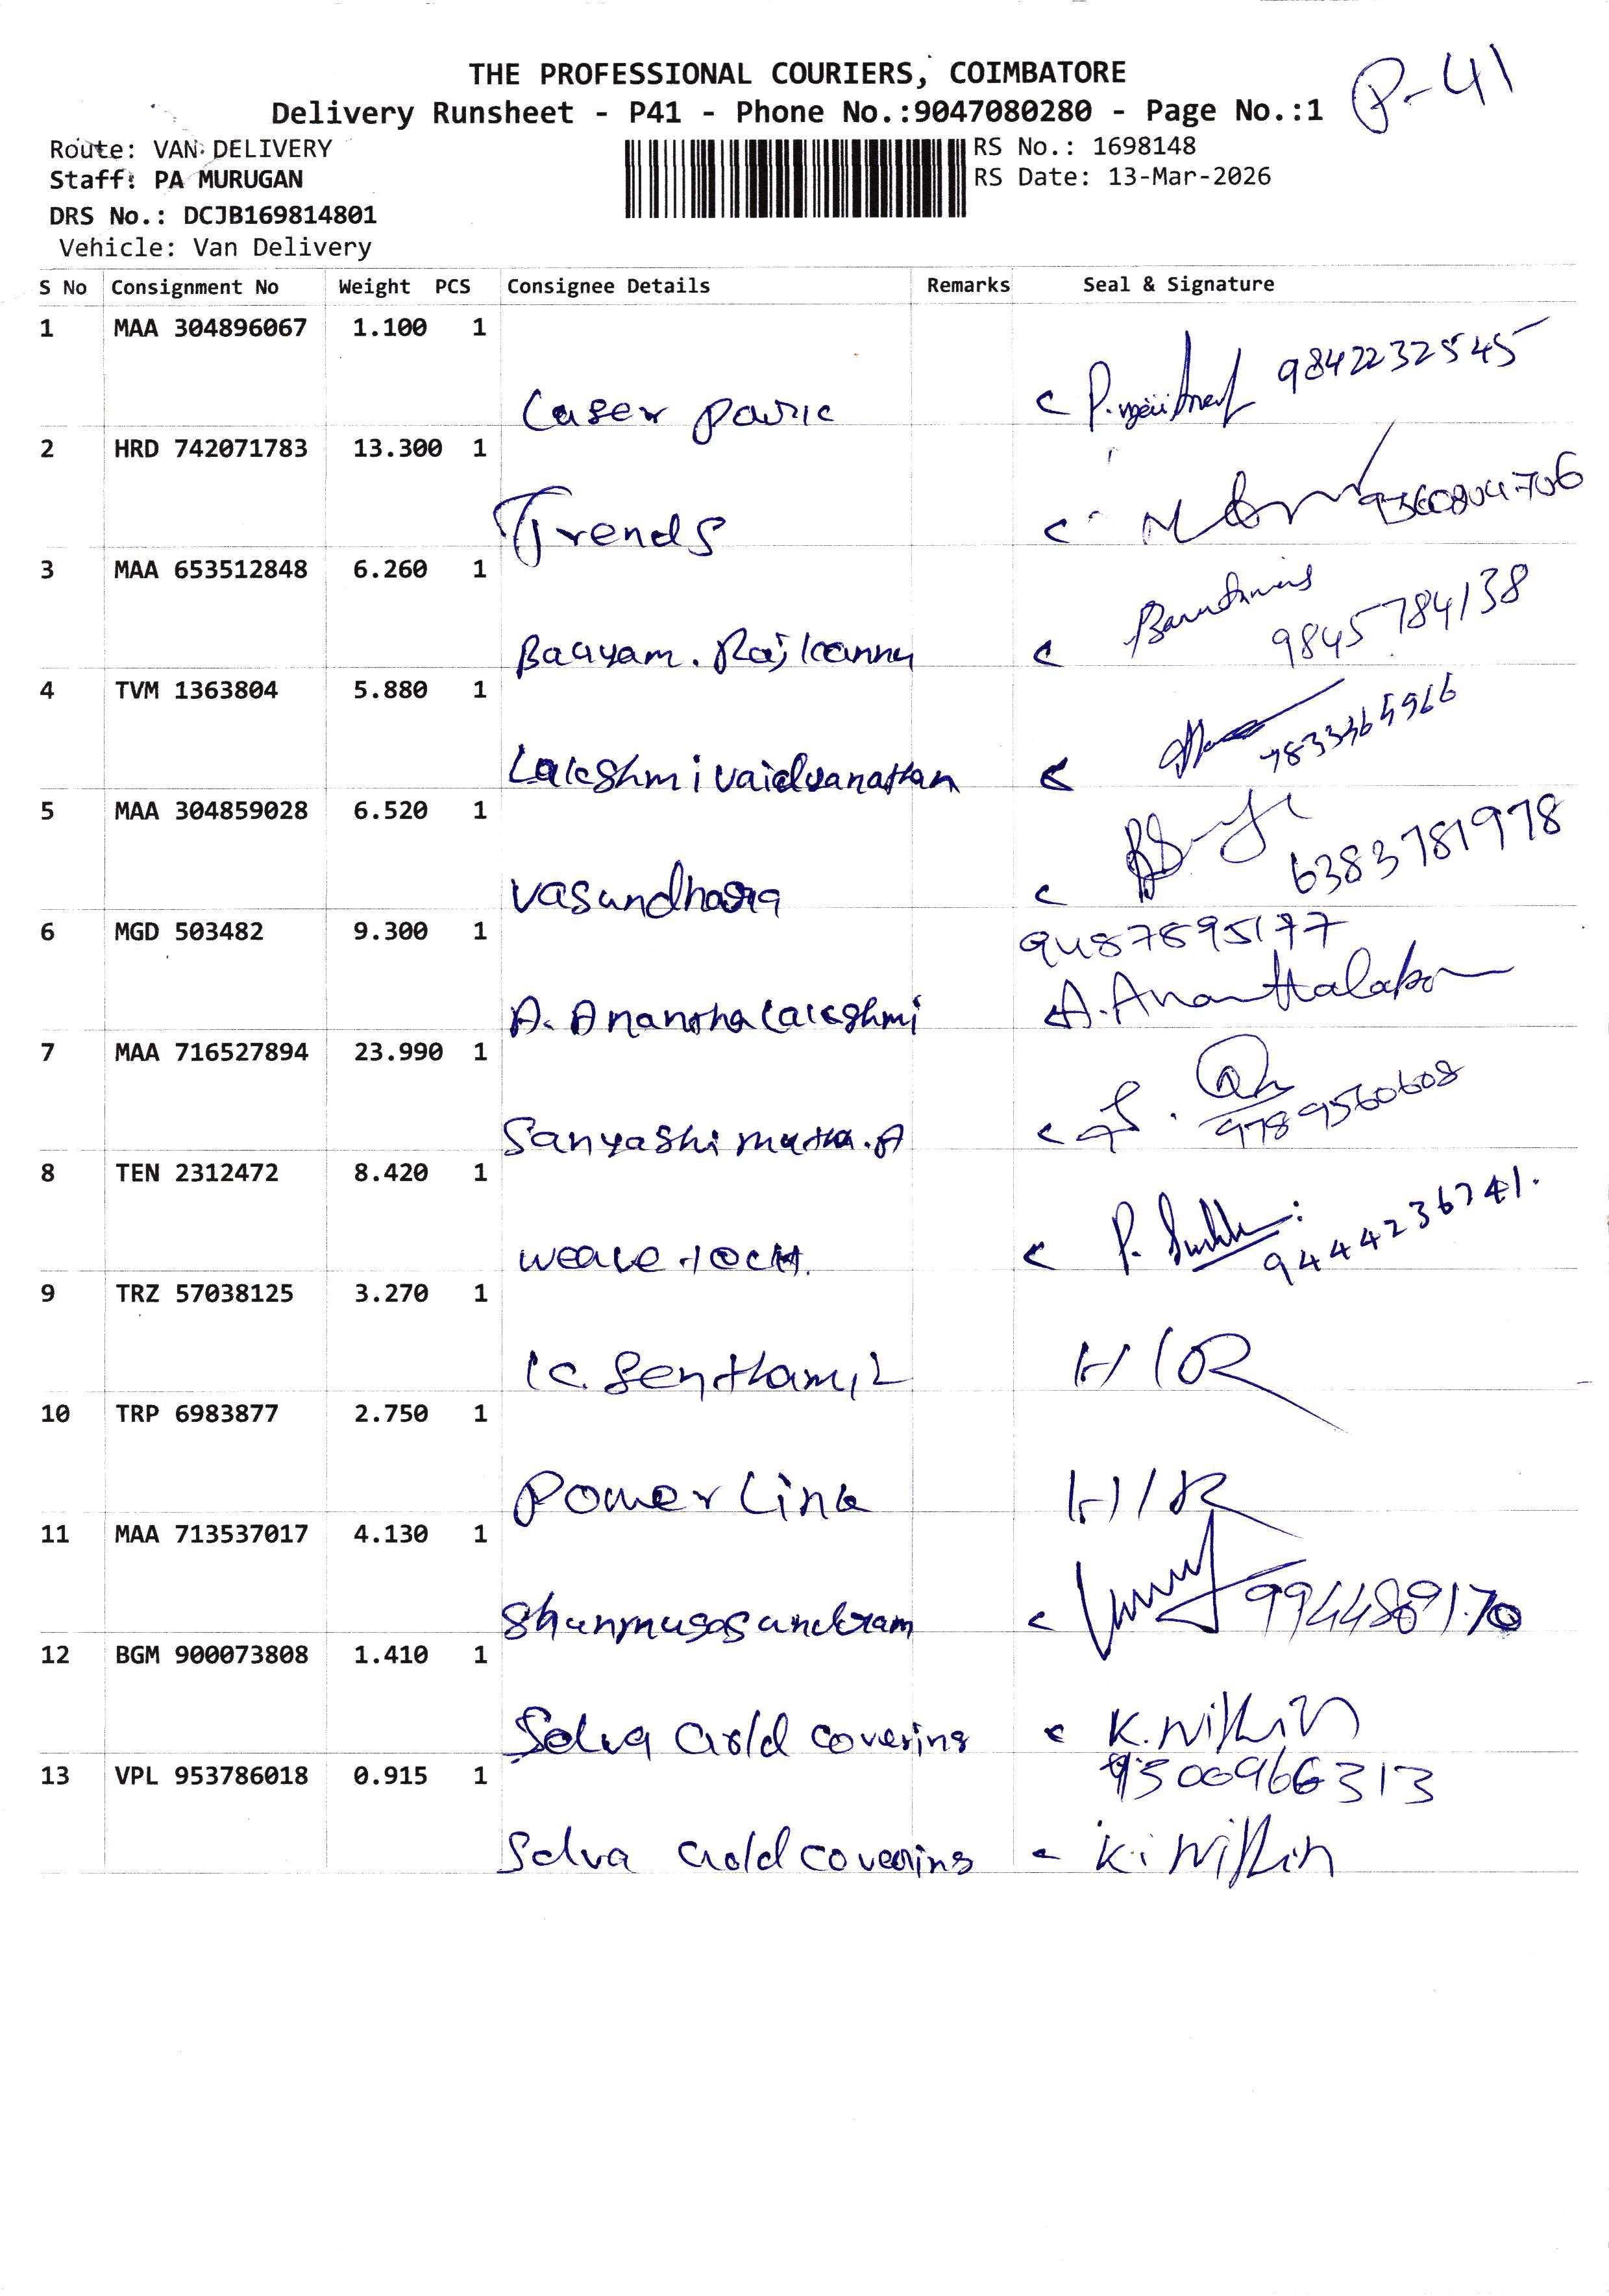 THE PROFESSIONAL COURIERS, COIMBATORE
P-41
Delivery Runsheet - P41 - Phone No.:9047080280 - Page No.:1
Route: VAN DELIVERY
RS No.: 1698148
Staff: PA MURUGAN
RS Date: 13-Mar-2026
DRS No.: DCJB169814801
Vehicle: Van Delivery
S No Consignment No Weight PCS Consignee Details Remarks Seal & Signature
1 MAA 304896067 1.100 1
Laser 9842232545
2 HRD 742071783 13.300 1
Trends
3 MAA 653512848 6.260 1
9845784138
4 TVM 1363804 5.880 1
Lakshmi vaidyanathan
5 MAA 304859028 6.520 1
vasundhara 6383781978
6 MGD 503482 9.300 1
9487895177
A. Anantha lakshmi
7 MAA 716527894 23.990 1
Sanyashi mutha. A 9789560608
8 TEN 2312472 8.420 1
9444236741.
9 TRZ 57038125 3.270 1
K. Senthamil H/R
10 TRP 6983877 2.750 1
Power Link H/R
11 MAA 713537017 4.130 1
Shanmugasundram 9944889170
12 BGM 900073808 1.410 1
Selva Gold covering K. Nithin
13 VPL 953786018 0.915 1
9500966313
Selva Gold covering K. Nithin